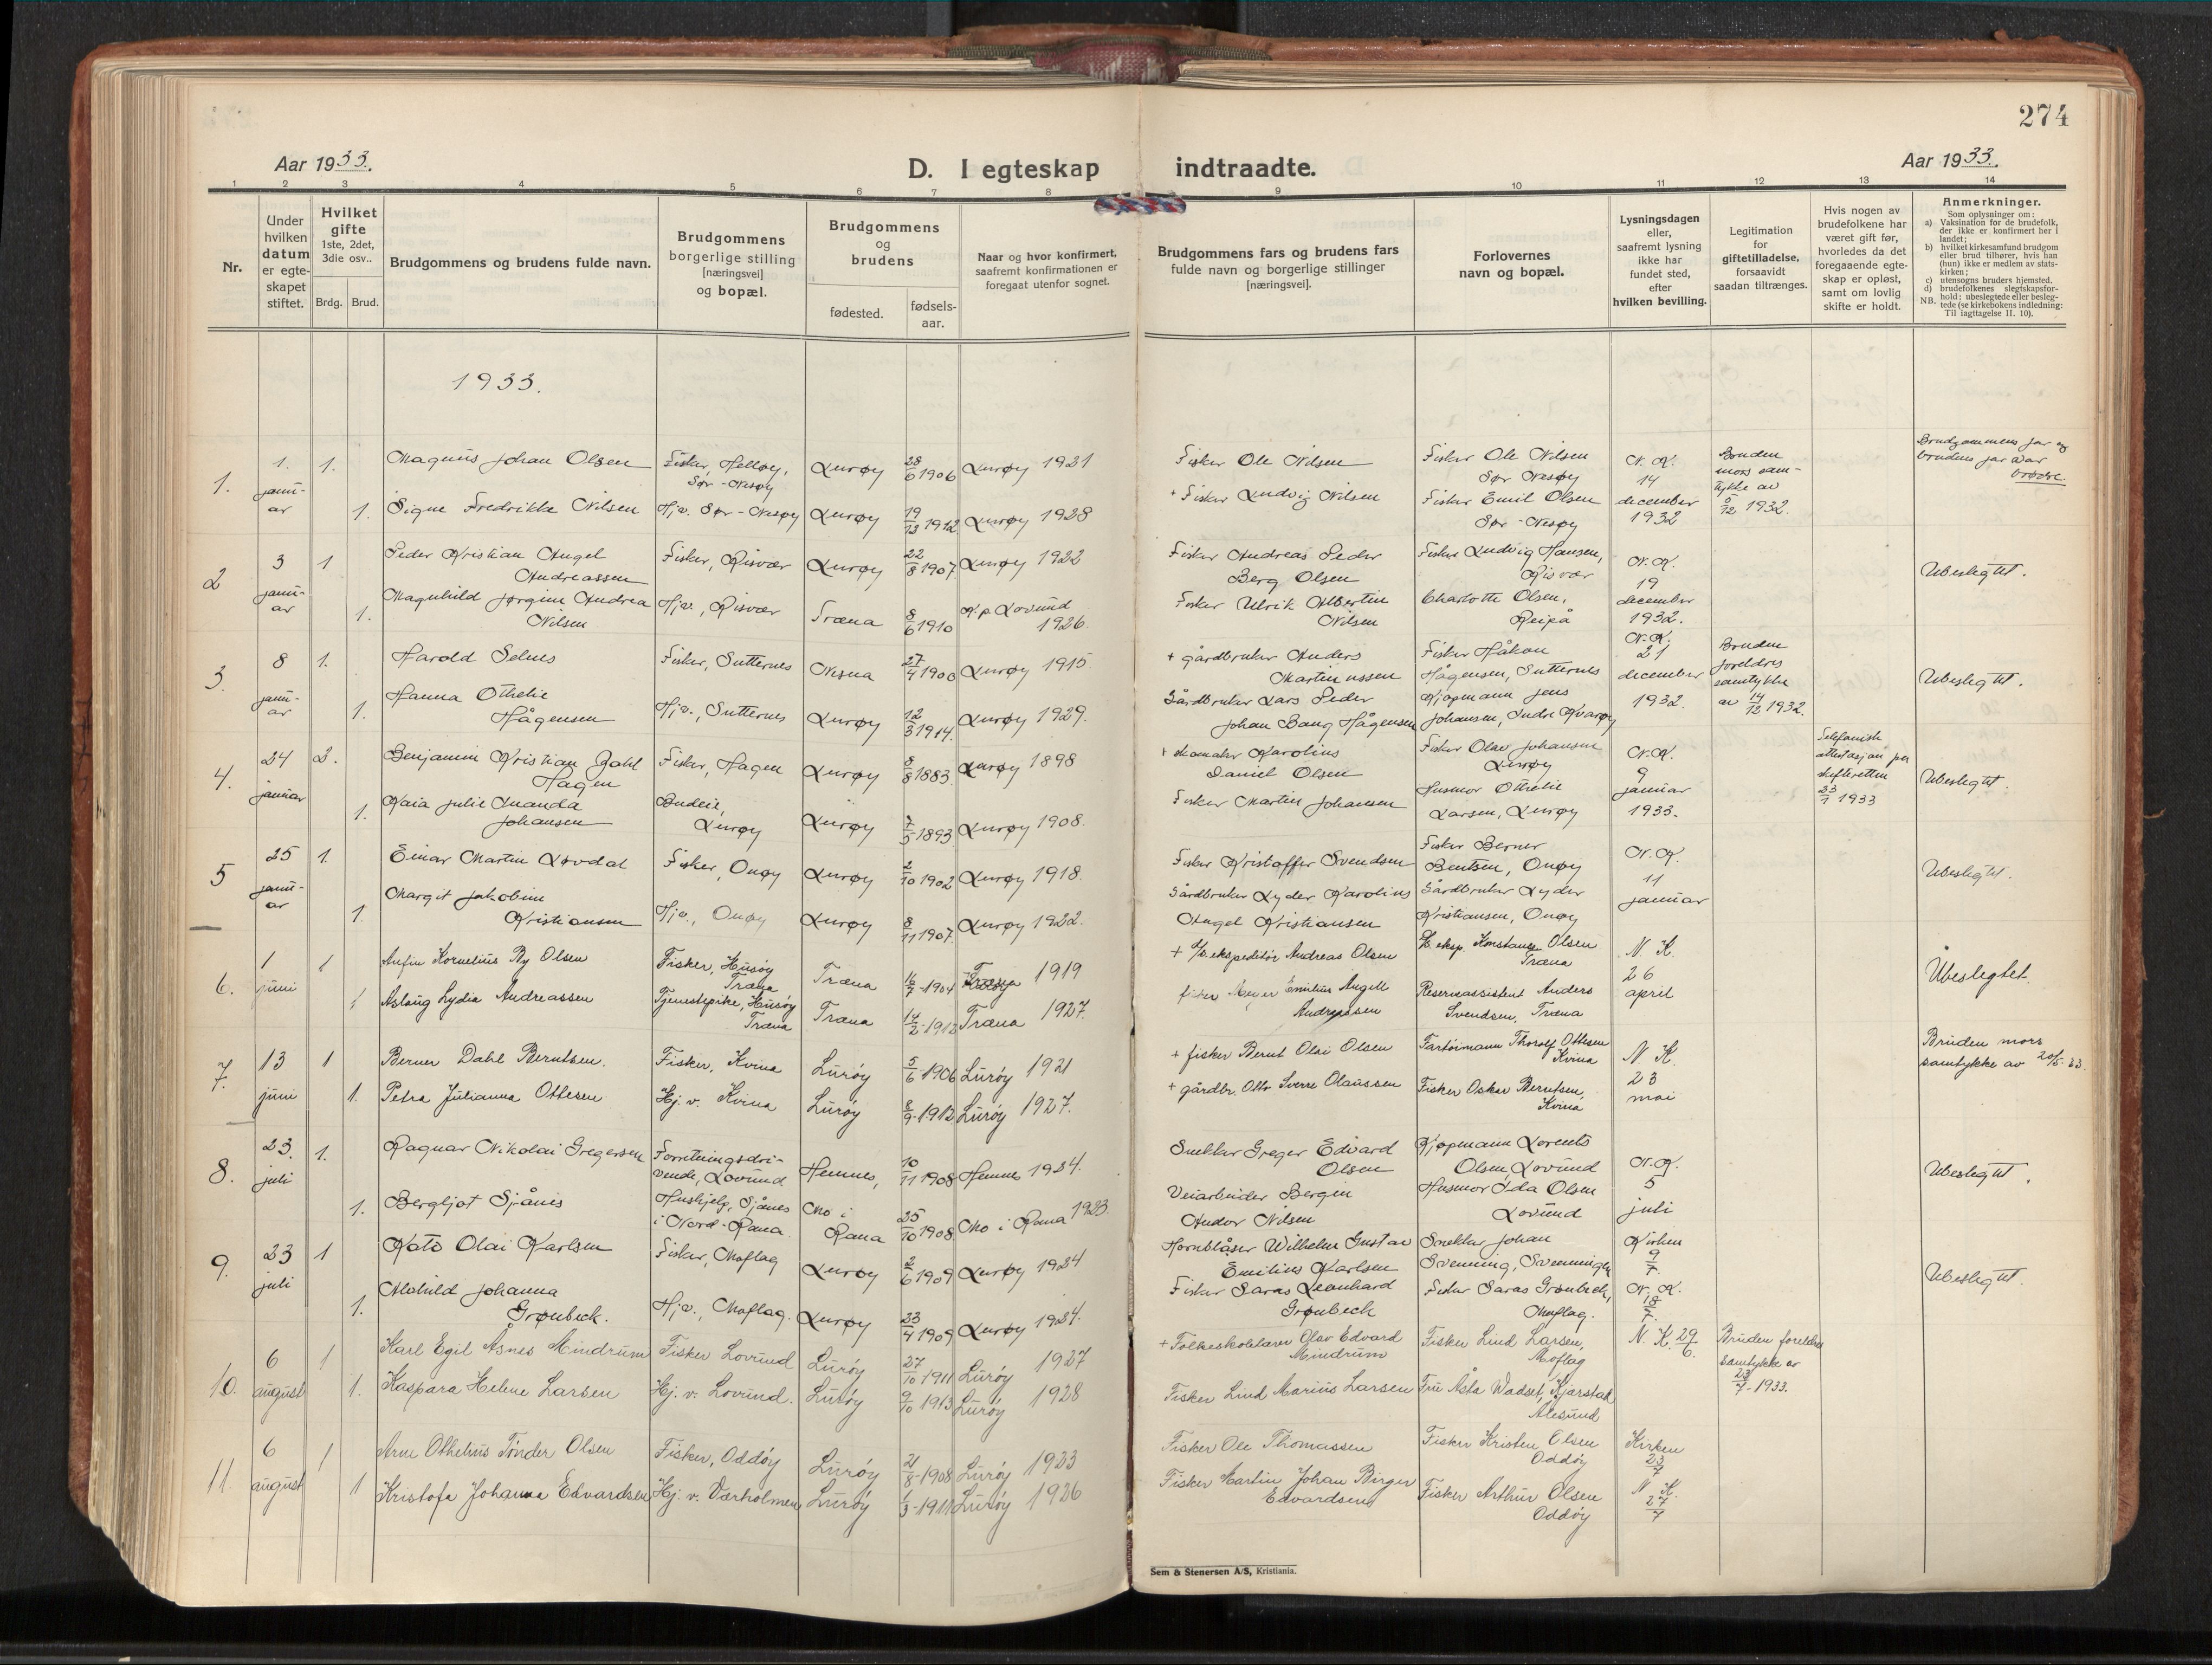 274
Aar 1933.
D. I egteskap indtraadte.
Aar 1933.
1 2 3 4 5 6 7 8 9 10 11 12 13 14
Nr.
Under hvilken datum er egte-skapet stiftet.
Hvilket gifte 1ste, 2det, 3die osv..
Brdg. Brud.
Brudgommens og brudens fulde navn.
Brudgommens borgerlige stilling [næringsvei] og bopæl.
Brudgommens og brudens
fødested.
fødsels-aar.
Naar og hvor konfirmert, saafremt konfirmationen er foregaat utenfor sognet.
Brudgommens fars og brudens fars fulde navn og borgerlige stillinger [næringsvei].
Forlovernes navn og bopæl.
Lysningsdagen eller, saafremt lysning ikke har fundet sted, efter hvilken bevilling.
Legitimation for giftetilladelse, forsaavidt saadan tiltrænges.
Hvis nogen av brudefolkene har været gift før, hvorledes da det foregaaende egte-skap er opløst, samt om lovlig skifte er holdt.
Anmerkninger.
Som oplysninger om:
a) Vaksination for de brudefolk, der ikke er konfirmert her i landet;
b) hvilket kirkesamfund brudgom eller brud tilhører, hvis han (hun) ikke er medlem av stats-kirken;
c) utensogns bruders hjemsted.
d) brudefolkenes slegtskapsfor-hold: ubeslegtede eller besleg-tede (se kirkebokens indledning: NB. Til iagttagelse II. 10).
1933.
1. 1. januar 1. Magnus Johan Olsen Fisker, Helløy, Sør-Nesøy Lurøy 28/6 1906 Lurøy 1921 Fisker Ole Nilsen Fisker Ole Nilsen Sør Nesøy N. K. 14 december 1932 Bruden mors sam-tykke av 5/12 1932. Brudgommens far og brudens far var brødre.
1. Signe Fredrikke Nilsen Hjv. Sør-Nesøy Lurøy 19/12 1912 Lurøy 1928 + Fisker Ludvig Nilsen Fisker Emil Olsen Sør-Nesøy
2 3 januar 1 Peder Kristian Angel Andreassen Fisker, Risvær Lurøy 22/8 1907. Lurøy 1922 Fisker Andreas Peder Berg Olsen Fisker Ludvig Hansen, Risvær N. K. 19 december 1932. Ubeslegtet.
1. Magnhild Jørgine Andrea Nilsen Hjv., Risvær Træna 8/6 1910 K.p. Lovund 1926. Fisker Ulrik Albertin Nilsen Charlotte Olsen, Reipå
3. 8 januar 1. Harold Selnes Fisker, Sutternes Nesna 27/4 1900 Lurøy 1915 + gårdbruker Anders Martinussen Fisker Håkon Hågensen, Sutternes N. K. 21 december 1932. Bruden foreldres samtykke av 14/12 1932. Ubeslegtet.
1. Hanna Othelie Hågensen Hjv., Sutternes Lurøy 12/3 1914. Lurøy 1929. Gårdbruker Lars Peder Johan Bang Hågensen Kjøpmann Jens Johansen, Indre Kvarøy
4. 24 januar 2. Benjamin Kristian Dahl Hagen Fisker, Hagen Lurøy 8/8 1883 Lurøy 1898 + skomaker Karolius Daniel Olsen Fisker Olav Johansen Lurøy N. K. 9 januar 1933. Telefonisk attestasjon per skifteretten 23/1 1933 Ubeslegtet.
1. Kaia Julie Amanda Johansen Budeie, Lurøy Lurøy 7/5 1893 Lurøy 1908. Fisker Martin Johansen Husmor Othelie Larsen, Lurøy
5 25 januar 1. Einar Martin Løvdal Fisker, Onøy Lurøy 2/10 1902 Lurøy 1918. Fisker Kristoffer Svendsen Fisker Berner Bentsen, Onøy N. K. 11 januar Ubeslegtet.
1. Margit Jakobine Kristiansen Hjv., Onøy Lurøy 8/11 1907. Lurøy 1922. Gårdbruker Lyder Karolius Angel Kristiansen Gårdbruker Lyder Kristiansen, Onøy
6. 1 juni 1 Anfin Kornelius By Olsen Fisker, Husøy Træna Træna 16/7-1904 Træna 1919 + ekspeditør Andreas Olsen eksp. Konstanse Olsen Træna N. K. 26 april Ubeslegtet.
1 Aslaug Lydia Andreassen Tjenestepike, Husøy Træna Træna 14/2-1912 Træna 1927. fisker Meyer Emilius Angell Andreassen Reserveassistent Anders Svendsen, Træna
7. 13 juni 1 Berner Dahl Berntsen. Fisker, Kvina Lurøy 5/6 1906 Lurøy 1921 + fisker Bernt Olai Olsen Fartøimann Thorolf Ottesen Kvina N K. 23 mai Bruden mors samtykke av 20/5-33.
1. Petra Julianna Ottesen Hj. v. Kvina Lurøy 8/9-1912 Lurøy 1927. + gårdbr. Otto Sverre Olaussen Fisker Oskar Berntsen, Kvina
8. 23. juli 1. Ragnar Nikolai Gregersen Forretningsdri-vende, Lovund Hemnes, 10/11 1908 Hemnes 1924. Snekker Greger Edvard Olsen Kjøpmann Lorents Olsen, Lovund N. K. 5 juli Ubeslegtet.
1. Bergljot Sjånes Hushjelp, Sjånes i Nord-Rana Mo i Rana 25/10 1908 Mo i Rana 1923. Veiarbeider Bergin Andor Nilsen Husmor Ida Olsen Lovund
9. 23 juli 1 Kato Olai Karlsen Fisker, Moflag Lurøy 2/6 1909 Lurøy 1924 Hornblåser Wilhelm Gustav Emilius Karlsen Snekker Johan Svenning, Svenningen Kirken 9/7. Ubeslegtet.
1. Alvhild Johanna Grønbeck. Hjv., Moflag. Lurøy 23/4 1909 Lurøy 1924. Fisker Saras Leonhard Grønbeck Fisker Saras Grønbeck, Moflag. N. K. 18/7.
10. 6 august 1 Karl Egil Åsnes Mindrum Fisker Lovund Lurøy 27/10 1911 Lurøy 1927 + Folkeskolelærer Olav Edvard Mindrum Fisker Lind Larsen, Moflag N. K. 29/6. Bruden foreldres samtykke av 23/7-1933.
1. Kaspara Helene Larsen Hj. v. Lovund. Lurøy 9/10 1913 Lurøy 1928 Fisker Lind Marius Larsen Fru Åsta Wadset, Kjærstad Ålesund
11. 6 august 1 Arne Othelius Tønder Olsen Fisker, Oddøy Lurøy 21/8-1908 Lurøy 1923 Fisker Ole Thomassen Fisker Kristen Olsen Oddøy Kirken 23/7
1 Kristofa Johanna Edvardsen Hj. v. Værholmen Lurøy 1/3-1911 Lurøy 1926 Fisker Martin Johan Birger Edvardsen Fisker Arthur Olsen Oddøy N K. 27/7
Sem & Stenersen A/S, Kristiania.